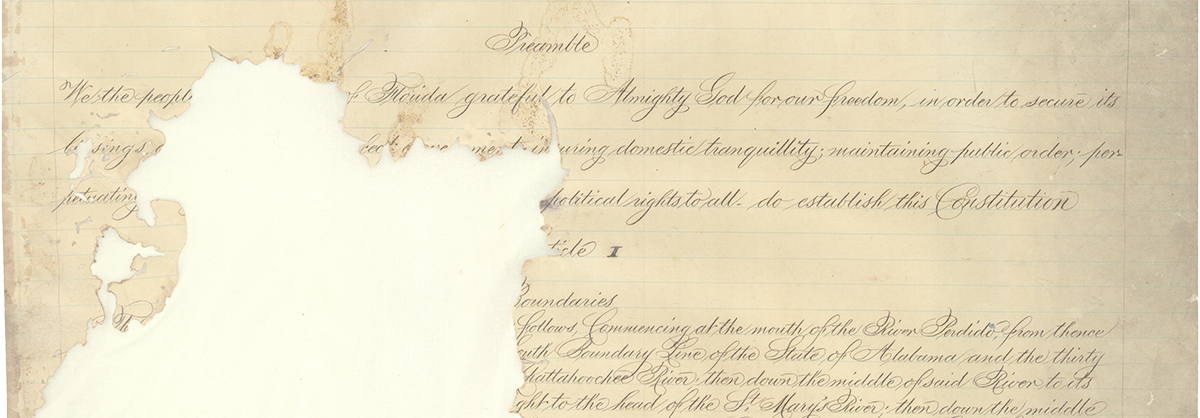 Preamble
We the people of Florida grateful to Almighty God for our freedom, in order to secure its
blessings government insuring domestic tranquillity; maintaining public order, per-
petuating political rights to all do establish this Constitution
Article I
Boundaries
follows, Commencing at the mouth of the River Perdido, from thence
South Boundary Line of the State of Alabama and the thirty
Chattahoochee River, then down the middle of said River to its
to the head of the St. Mary's River; then down the middle